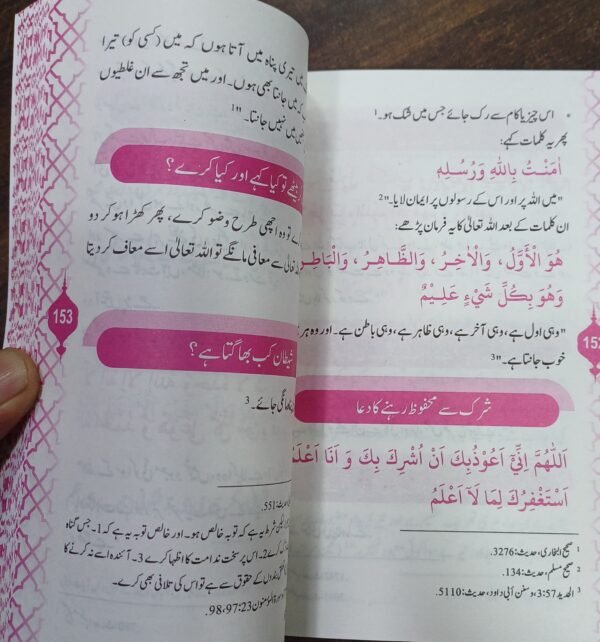 • اس چیز یا کام سے رک جائے جس میں شک ہو۔1
پھر یہ کلمات کہے:
اٰمَنْتُ بِاللّٰهِ وَرُسُلِهٖ
"میں اللہ پر اور اس کے رسولوں پر ایمان لایا۔"2
ان کلمات کے بعد اللہ تعالیٰ کا یہ فرمان پڑھے:
هُوَ الْاَوَّلُ ، وَالْاٰخِرُ ، وَالظَّاهِرُ ، وَالْبَاطِنُ
وَهُوَ بِكُلِّ شَيْءٍ عَلِيْمٌ
"وہی اول ہے، وہی آخر ہے، وہی ظاہر ہے، وہی باطن ہے۔ اور وہ ہر
خوب جانتا ہے۔"3
شرک سے محفوظ رہنے کا دعا
اَللّٰهُمَّ اِنِّيْ اَعُوْذُبِكَ اَنْ اُشْرِكَ بِكَ وَ اَنَا اَعْلَمُ
اَسْتَغْفِرُكَ لِمَا لَآ اَعْلَمُ
1 صحیح البخاری، حدیث: 3276.
2 صحیح مسلم، حدیث: 134.
3 الحدید 3:57، وسنن أبي داود، حدیث: 5110.
152
تیری پناہ میں آتا ہوں کہ میں (کسی کو) تیرا
میں جانتا بھی ہوں۔ اور میں تجھ سے ان غلطیوں
میں نہیں جانتا۔"1
بیٹھے تو کیا کہے اور کیا کرے؟
تو وہ اچھی طرح وضو کرے، پھر کھڑا ہو کر دو
سے معافی مانگے تو اللہ تعالیٰ اسے معاف کر دیتا
153
شیطان کب بھاگتا ہے؟
مانگی جائے۔3
حدیث: 551.
شرط یہ ہے کہ توبہ خالص ہو۔ اور خالص توبہ یہ ہے کہ 1۔ جس گناہ
کرے 2۔ اس پر سخت ندامت کا اظہار کرے 3۔ آئندہ اسے نہ کرنے کا
بندوں کے حقوق سے ہے تو اس کی تلافی بھی کرے۔
المؤمنون 98,97:23.